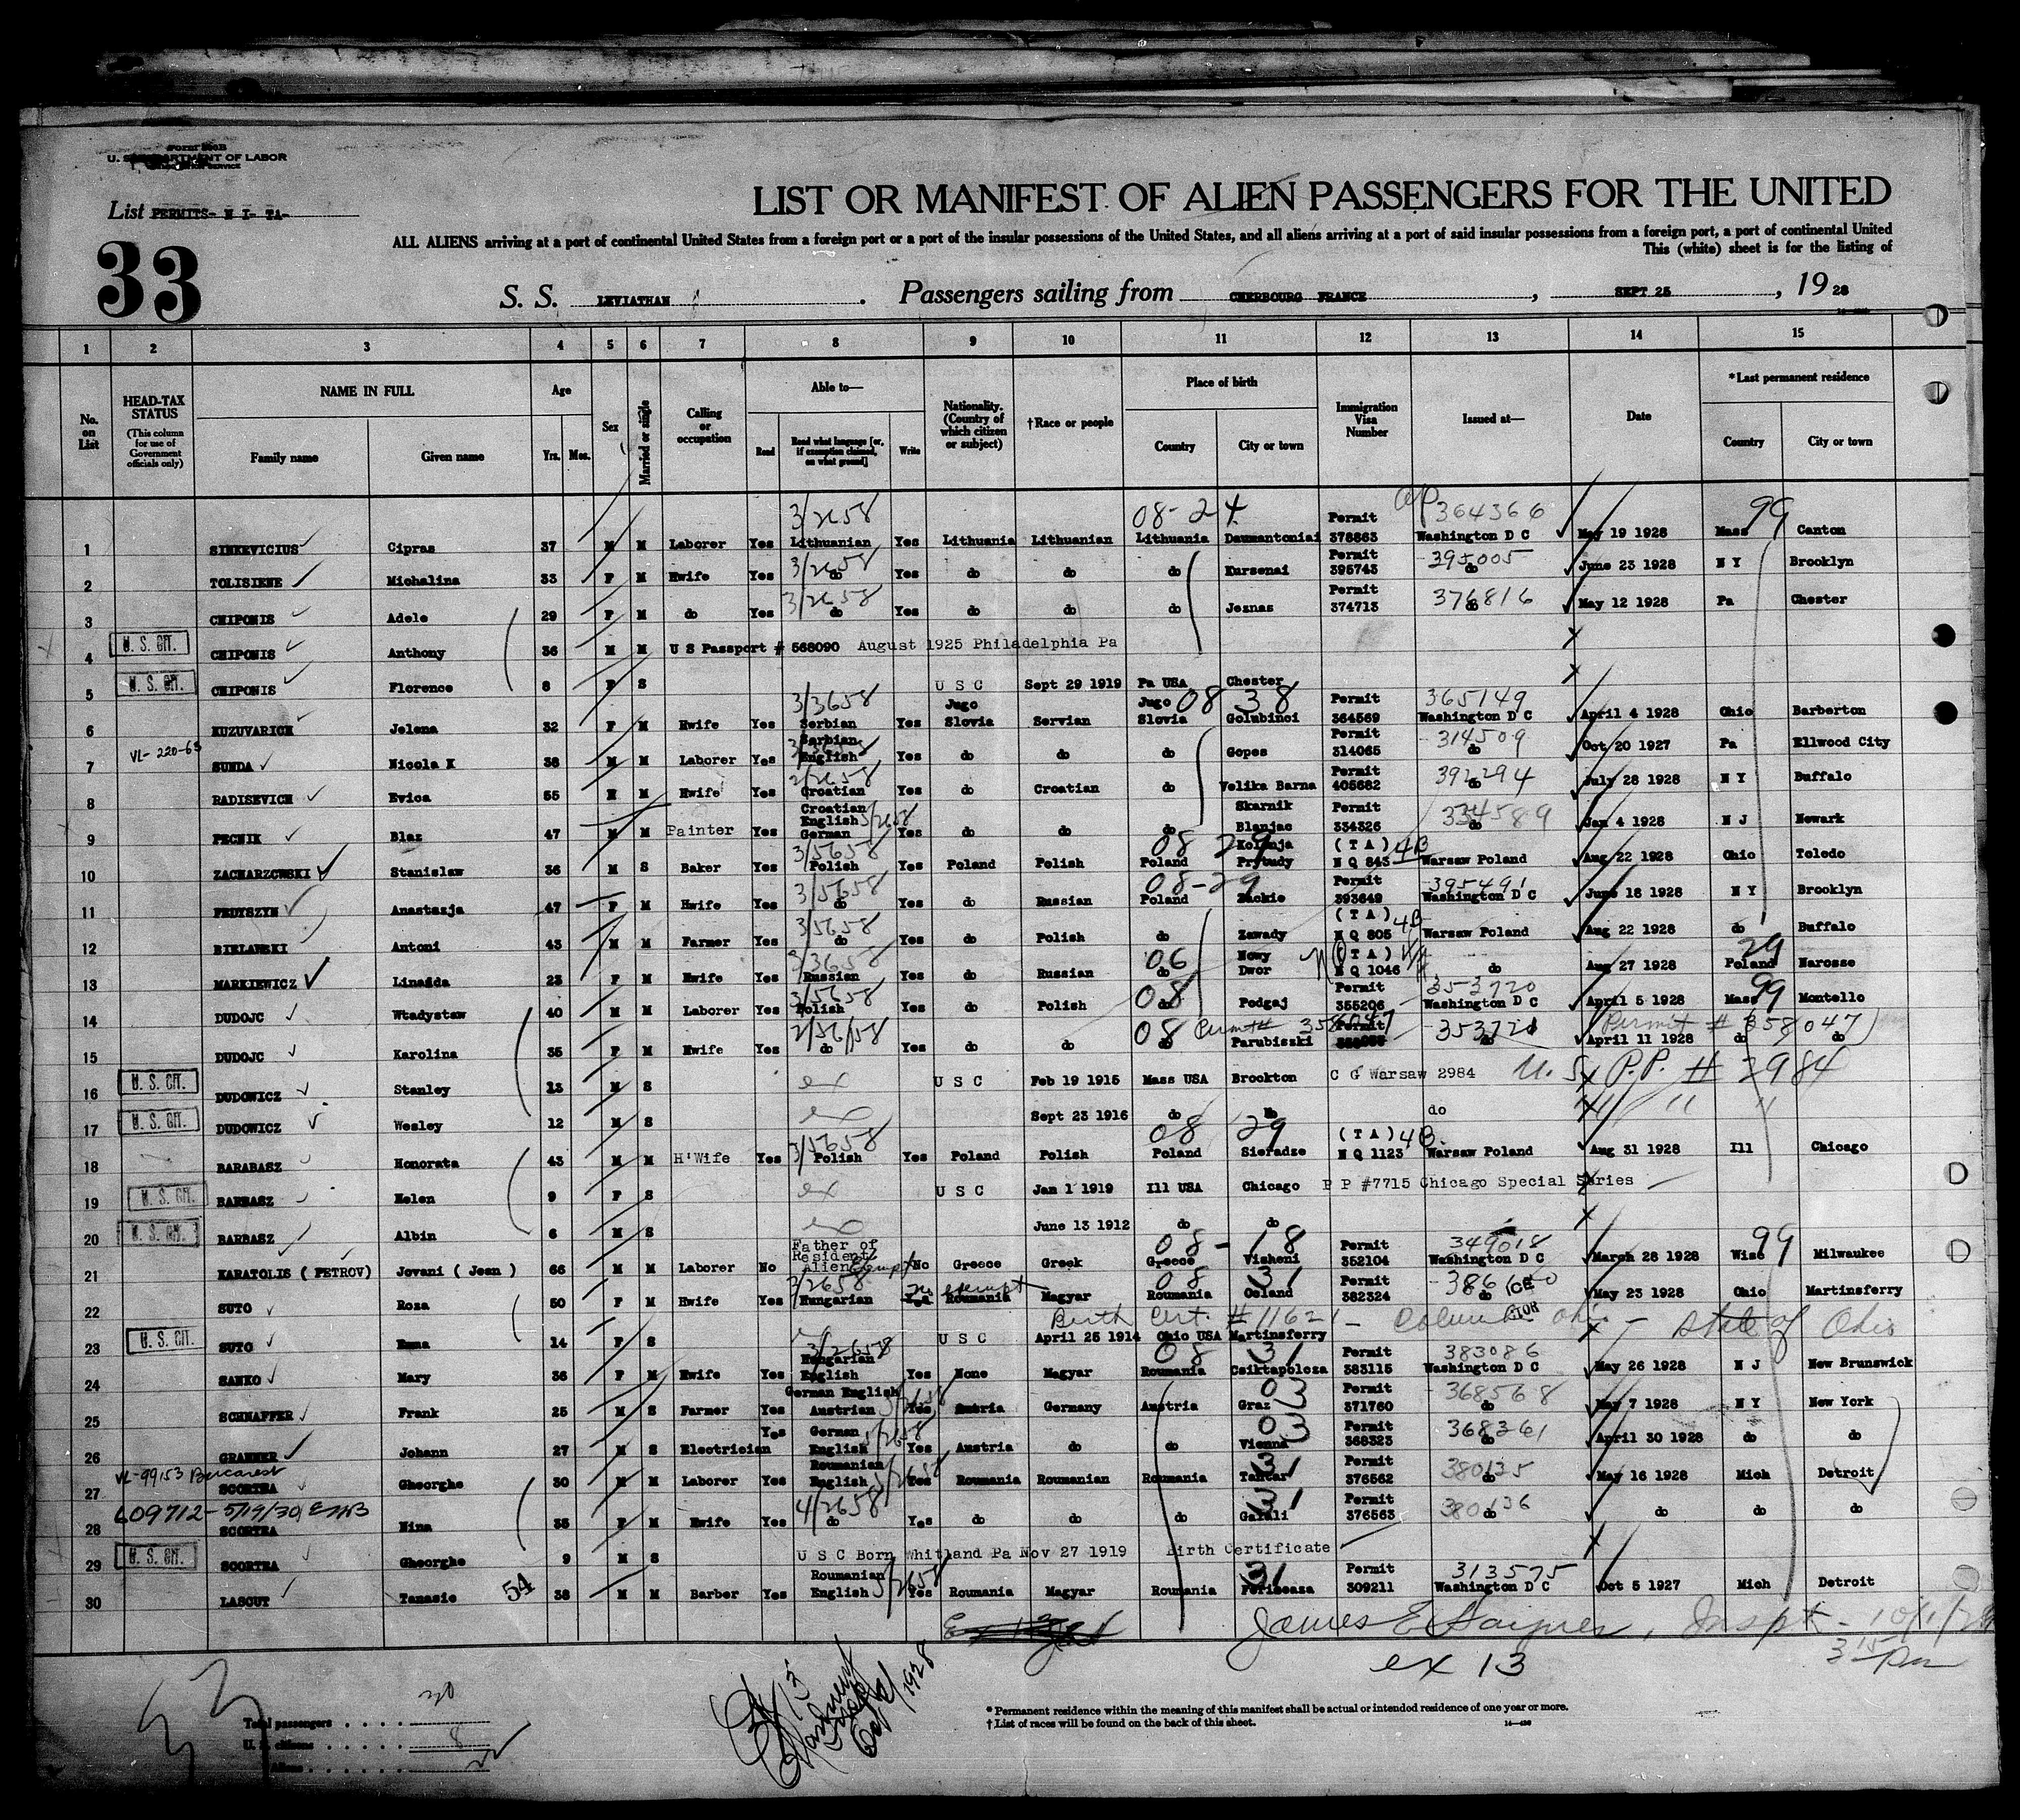 U. S. DEPARTMENT OF LABOR
List PERMITS- N I- TA-
LIST OR MANIFEST OF ALIEN PASSENGERS FOR THE UNITED
33
ALL ALIENS arriving at a port of continental United States from a foreign port or a port of the insular possessions of the United States, and all aliens arriving at a port of said insular possessions from a foreign port, a port of continental United
This (white) sheet is for the listing of
S. S. LEVIATHAN . Passengers sailing from CHERBOURG FRANCE , SEPT 25 , 19 28
1 2 3 4 5 6 7 8 9 10 11 12 13 14 15
No. on List
HEAD-TAX STATUS (This column for use of Government officials only)
NAME IN FULL Family name Given name
Age Yrs. Mos.
Sex
Married or single
Calling or occupation
Able to— Read Read what language [or, if exemption claimed, on what ground] Write
Nationality. (Country of which citizen or subject)
†Race or people
Place of birth Country City or town
Immigration Visa Number
Issued at—
Date
*Last permanent residence Country City or town
3/2658 08-24 364366 99
1 SINKEVICIUS Cipras 37 M M Laborer Yes Lithuanian Yes Lithuania Lithuanian Lithuania Daumantoniai Permit 378863 Washington D C May 19 1928 Mass Canton
3/2658 395005
2 TOLISIENE Michalina 33 F M Hwife Yes do Yes do do do Kursenai Permit 395743 do June 23 1928 N Y Brooklyn
3/2658 376816
3 CHIPONIS Adele 29 F M do Yes do Yes do do do Jeznas Permit 374713 do May 12 1928 Pa Chester
4 U. S. CIT. CHIPONIS Anthony 36 M M U S Passport # 568090 August 1925 Philadelphia Pa
5 U. S. CIT. CHIPONIS Florence 8 F S U S C Sept 29 1919 Pa USA Chester
3/3658 08 38 365149
6 KUZUVARICH Jelena 32 F M Hwife Yes Serbian Yes Jugo Slovia Servian Jugo Slovia Golubinci Permit 364569 Washington D C April 4 1928 Ohio Barberton
VL-220-63 314509
7 SUNDA Nicola K 38 M M Laborer Yes Serbian English Yes do do do Gopes Permit 314065 do Oct 20 1927 Pa Ellwood City
392294
8 RADISEVICH Evica 55 M M Hwife Yes Croatian Yes do Croatian do Velika Barna Permit 405682 do July 28 1928 N Y Buffalo
3/2658 334589
9 PECNIK Blaz 47 M M Painter Yes Croatian English German Yes do do do Skarnik Blanjac Permit 334326 do Jan 4 1928 N J Newark
3/5658 08 29 4B
10 ZACHARZOWSKI Stanislaw 36 M S Baker Yes Polish Yes Poland Polish Poland (TA) N Q 843 Warsaw Poland Aug 22 1928 Ohio Toledo
3/5658 08-29 395491
11 FEDYSZYN Anastazja 47 F M Hwife Yes do Yes do Russian Poland Permit 393649 Washington D C June 18 1928 N Y Brooklyn
3/5658 4B
12 BIELAWSKI Antoni 43 M M Farmer Yes do Yes do Polish do Zawady (TA) N Q 805 Warsaw Poland Aug 22 1928 do Buffalo
3/3658 06 29
13 MARKIEWICZ 23 F M Hwife Yes Russian Yes do Russian do Nowy Dwor (TA) N Q 1046 do Aug 27 1928 Poland Narosse
3/5658 08 353720 99
14 DUDOJC Wtadystaw 40 M M Laborer Yes Polish Yes do Polish do Podgaj Permit 355206 Washington D C April 5 1928 Mass Montello
08 Permit# 358047 353721 Permit # (358047)
15 DUDOJC Karolina 35 F M Hwife Yes do Yes do do do Parubiszki Permit do April 11 1928 do do
16 U. S. CIT. DUDOWICZ Stanley 13 M S ex U S C Feb 19 1915 Mass USA Brockton C G Warsaw 2984 U.S. P.P. # 2984
17 U. S. CIT. DUDOWICZ Wesley 12 M S ex Sept 23 1916 do do do " " "
3/5658 08 29 4B
18 BARABASZ Honorata 43 M M H'Wife Yes Polish Yes Poland Polish Poland Sieradze (TA) N Q 1123 Warsaw Poland Aug 31 1928 Ill Chicago
19 U. S. CIT. BARBASZ Helen 9 F S ex U S C Jan 1 1919 Ill USA Chicago P P #7715 Chicago Special Series
20 U. S. CIT. BARBASZ Albin 6 M S ex June 13 1912 do do
08-18 349018 99
21 KARATOLIS (PETROV) Jovani (Jean) 66 M M Laborer No Father of Resident Alien Exempt No Greece Greek Greece Visheni Permit 352104 Washington D C March 28 1928 Wisc Milwaukee
3/2658 no exempt 08 31
22 SUTO Roza 50 F M Hwife Yes Hungarian Roumania Magyar Roumania Ocland Permit 382324 do May 23 1928 Ohio Martinsferry
Birth Cert. #11621 - Columbus Ohio - State of Ohio
23 U. S. CIT. SUTO Emma 14 F S U S C April 25 1914 Ohio USA Martinsferry
3/2658 08 31 383086
24 SANKO Mary 36 F M Hwife Yes Hungarian English Yes None Magyar Roumania Csiktapoloza Permit 383115 Washington D C May 26 1928 N J New Brunswick
03 368568
25 SCHNAFFER Frank 25 M S Farmer Yes German English Austrian Yes Germany Austria Graz Permit 371760 do May 7 1928 N Y New York
3/2658 03 368361
26 Johann 27 M S Electrician Yes German English Yes Austria do do Vienna Permit 368323 do April 30 1928 do do
VL-99153 Bucarest 31 380135
27 SCORTEA Gheorghe 30 M M Laborer Yes Roumanian English Yes Roumania Roumanian Roumania Permit 376562 do May 16 1928 Mich Detroit
609712-5/19/30 4/2658 31 380136
28 SCORTEA Nina 35 F M Hwife Yes do Yes do do do Permit 376563 do do do do
29 U. S. CIT. SCORTEA Gheorghe 9 M S U S C Born Whitland Pa Nov 27 1919 Birth Certificate
54 31 313575
30 LASCUT Tanasie 38 M M Barber Yes Roumanian English Yes Roumania Magyar Roumania Permit 309211 Washington D C Oct 5 1927 Mich Detroit
James E Insp 10/1/28
ex 13 3 15 Pm
1928
* Permanent residence within the meaning of this manifest shall be actual or intended residence of one year or more.
† List of races will be found on the back of this sheet.
Total passengers 30
U. S. citizens 8
Aliens 22